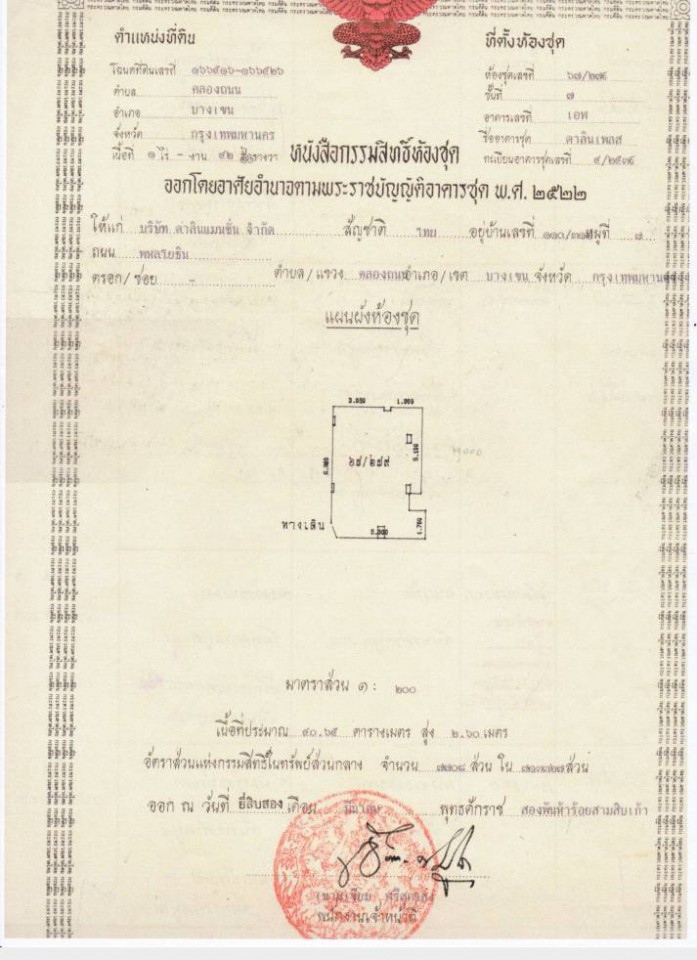 ตำแหน่งที่ดิน
ที่ตั้งห้องชุด
โฉนดที่ดินเลขที่ ๑๖๖๕๑๖-๑๖๖๕๒๖
ตำบล คลองถนน
อำเภอ บางเขน
จังหวัด กรุงเทพมหานคร
เนื้อที่ ๑ ไร่ - งาน ๙๒ ตารางวา
ห้องชุดเลขที่ ๖๘/๒๗๙
ชั้นที่ ๗
อาคารเลขที่ เอฟ
ชื่ออาคารชุด ดาลินเพลส
ทะเบียนอาคารชุดเลขที่ ๙/๒๕๓๙
หนังสือกรรมสิทธิ์ห้องชุด
ออกโดยอาศัยอำนาจตามพระราชบัญญัติอาคารชุด พ.ศ. ๒๕๒๒
ให้แก่ บริษัท ดาลินแมนชั่น จำกัด สัญชาติ ไทย อยู่บ้านเลขที่ หมู่ที่ ๘
ถนน พหลโยธิน
ตรอก/ซอย - ตำบล/แขวง คลองถนน อำเภอ/เขต บางเขน จังหวัด กรุงเทพมหานคร
แผนผังห้องชุด
3.050 1.950
๖๘/๒๗๙
ทางเดิน
5.000
1.700
มาตราส่วน ๑ : ๒๐๐
เนื้อที่ประมาณ ๙๐.๖๕ ตารางเมตร สูง ๒.๖๐ เมตร
อัตราส่วนแห่งกรรมสิทธิ์ในทรัพย์ส่วนกลาง จำนวน ส่วน ใน ส่วน
ออก ณ วันที่ ยี่สิบสอง เดือน มีนาคม พุทธศักราช สองพันห้าร้อยสามสิบเก้า
พนักงานเจ้าหน้าที่